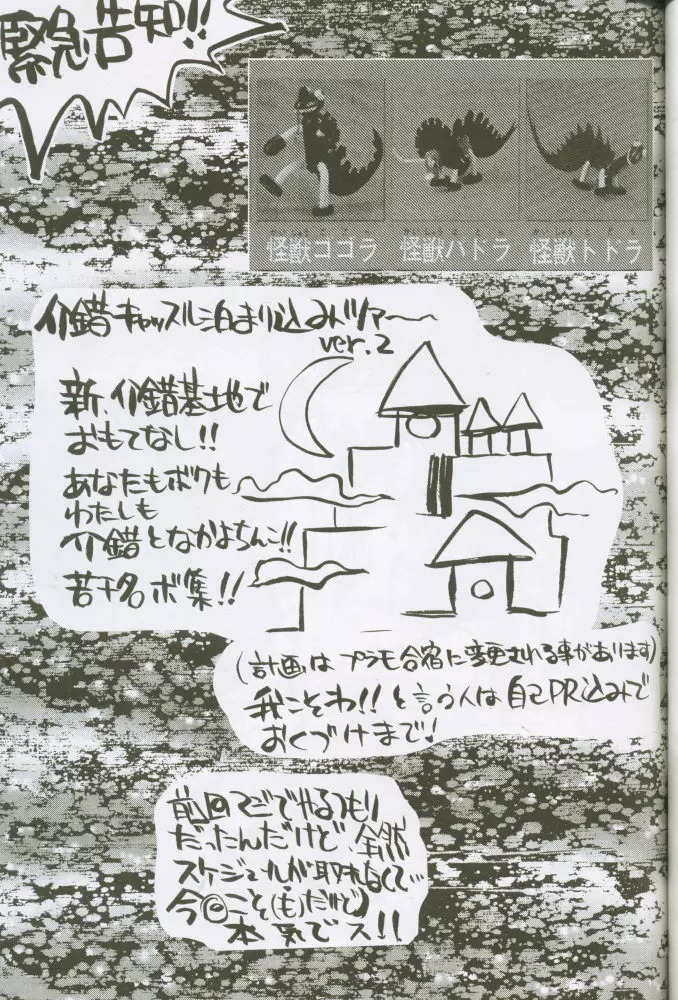 緊急告知!!
怪獣ココラ 怪獣ハドラ 怪獣トドラ
介錯キャッスル泊まり込みツアー
ver.2
新、介錯基地で
おもてなし!!
あなたもボクも
わたしも
介錯となかよちんこ!!
若干名ボ集!!
(計画はプラモ合宿に変更される事があります)
我こそわ!!と言う人は自己PR込みで
おくづけまで!
前回マジでやるつもり
だったんだけど、全然
スケジュールが取れなくて…
今回こそ(も)だけど)
本気でス!!